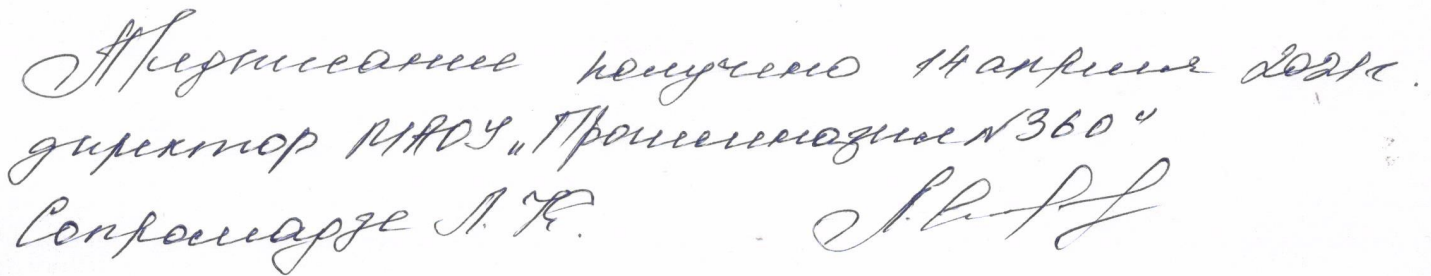 Предписание получено 14 апреля 2021г.
директор МАОУ „Прогимназия №360"
Сопромадзе Л. К.